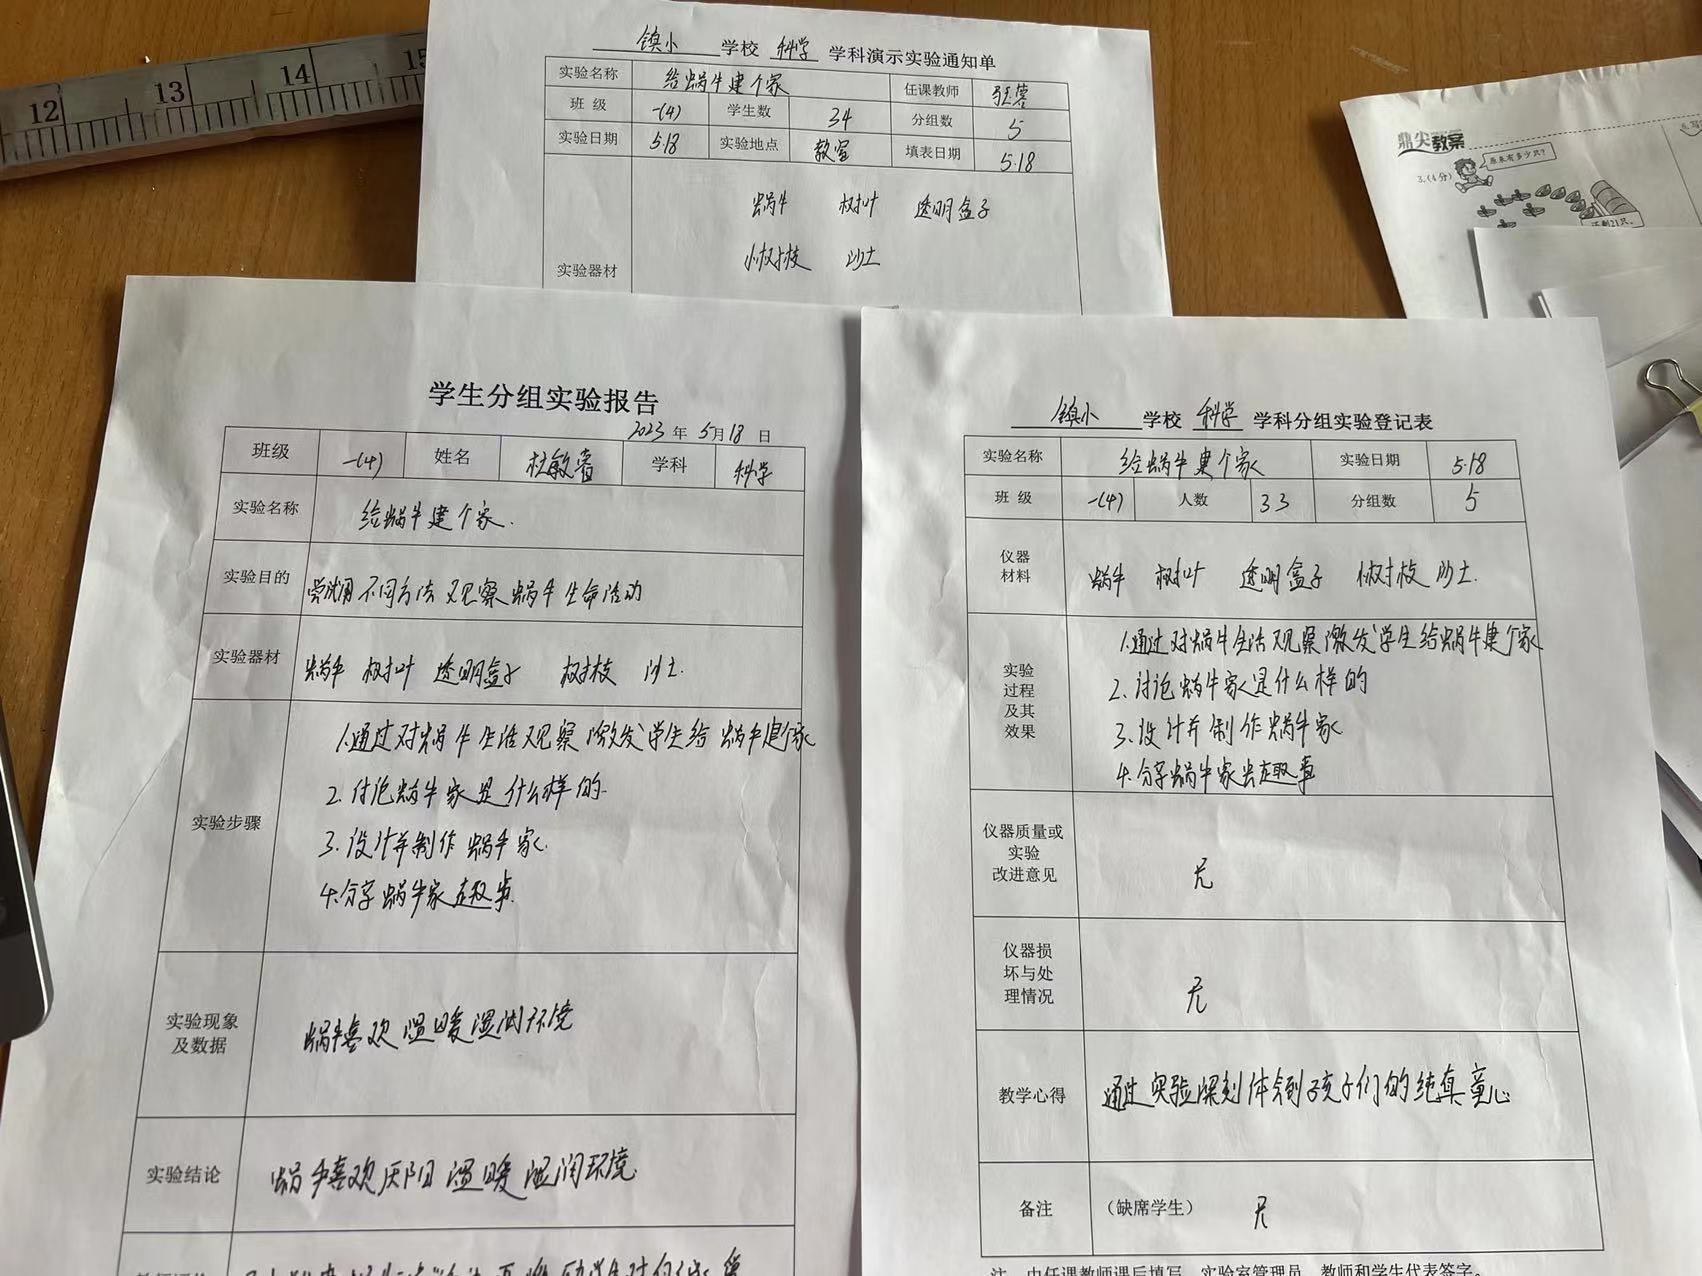 12 13 14 15
镇小 学校 科学 学科演示实验通知单
实验名称 给蜗牛建个家 任课教师
班 级 一(4) 学生数 34 分组数 5
实验日期 5.18 实验地点 教室 填表日期 5.18
蜗牛 树叶 透明盒子
实验器材 小树枝 沙土
鼎尖教案
原来有多少只?
3.(4分)
还剩21只。
学生分组实验报告
2023 年 5月18 日
班级 一(4) 姓名 杜敏 学科 科学
实验名称 给蜗牛建个家.
实验目的 尝试用不同方法 观察蜗牛生命活动
实验器材 蜗牛 树叶 透明盒子 树枝 沙土.
实验步骤
1.通过对蜗牛生活观察激发学生给蜗牛建个家
2.讨论蜗牛家是什么样的.
3.设计并制作蜗牛家.
4.分享蜗牛家趣事.
实验现象
及数据
蜗牛喜欢温暖湿润环境
实验结论 蜗牛喜欢阴温暖湿润环境.
镇小 学校 科学 学科分组实验登记表
实验名称 给蜗牛建个家 实验日期 5.18
班 级 一(4) 人数 33 分组数 5
仪器
材料
蜗牛 树叶 透明盒子 树枝 沙土.
实验
过程
及其
效果
1.通过对蜗牛生活观察激发学生给蜗牛建个家
2.讨论蜗牛家是什么样的
3.设计并制作蜗牛家
4.分享蜗牛家趣事
仪器质量或
实验
改进意见
无
仪器损
坏与处
理情况
无
教学心得 通过实验深刻体领到孩子们的纯真童心
备注 (缺席学生) 无
注 由任课教师课后填写 实验室管理员、教师和学生代表签字。